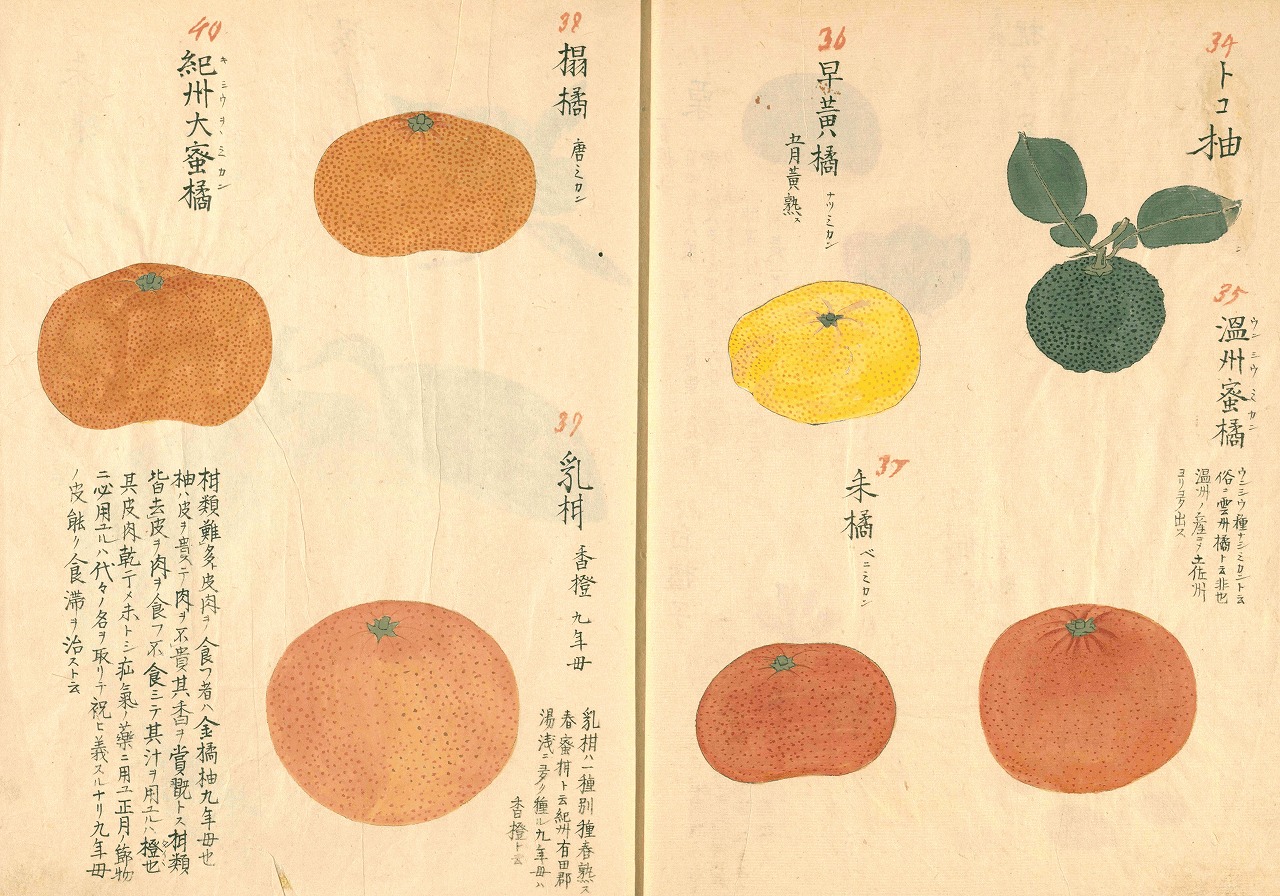 34
トコ柚
35
温州蜜橘
ウンシウミカン
ウンシウ種ナシミカント云
俗ニ雲州橘ト云非也
温州ノ産ヲ土佐州
ヨリヨク出ス
36
早黄橘
ナツミカン
五月黄熟ス
37
朱橘
ベニミカン
38
榻橘
唐ミカン
39
乳柑
香橙 九年母
乳柑ハ一種別種春熟ス
春蜜柑ト云紀州有田郡
湯浅ニヨクアリ種ル九年母ハ
香橙ト云
40
紀州大蜜橘
キシウヲヽミカン
柑類難多皮肉ヲ食フ者ハ金橘柚九年母也
柚ハ皮ヲ賞スニテ肉ヲ不貴其香ヲ賞翫トス柑類
皆去皮ヲ肉ヲ食フ不食ミテ其汁ヲ用ユルハ橙也
其皮肉乾テメ末トシ疝氣ノ薬ニ用ユ正月ノ節物
ニ必用ユルハ代々ノ名ヲ取リテ祝ヒ義スルナリ九年母
ノ皮能ク食滞ヲ治スト云